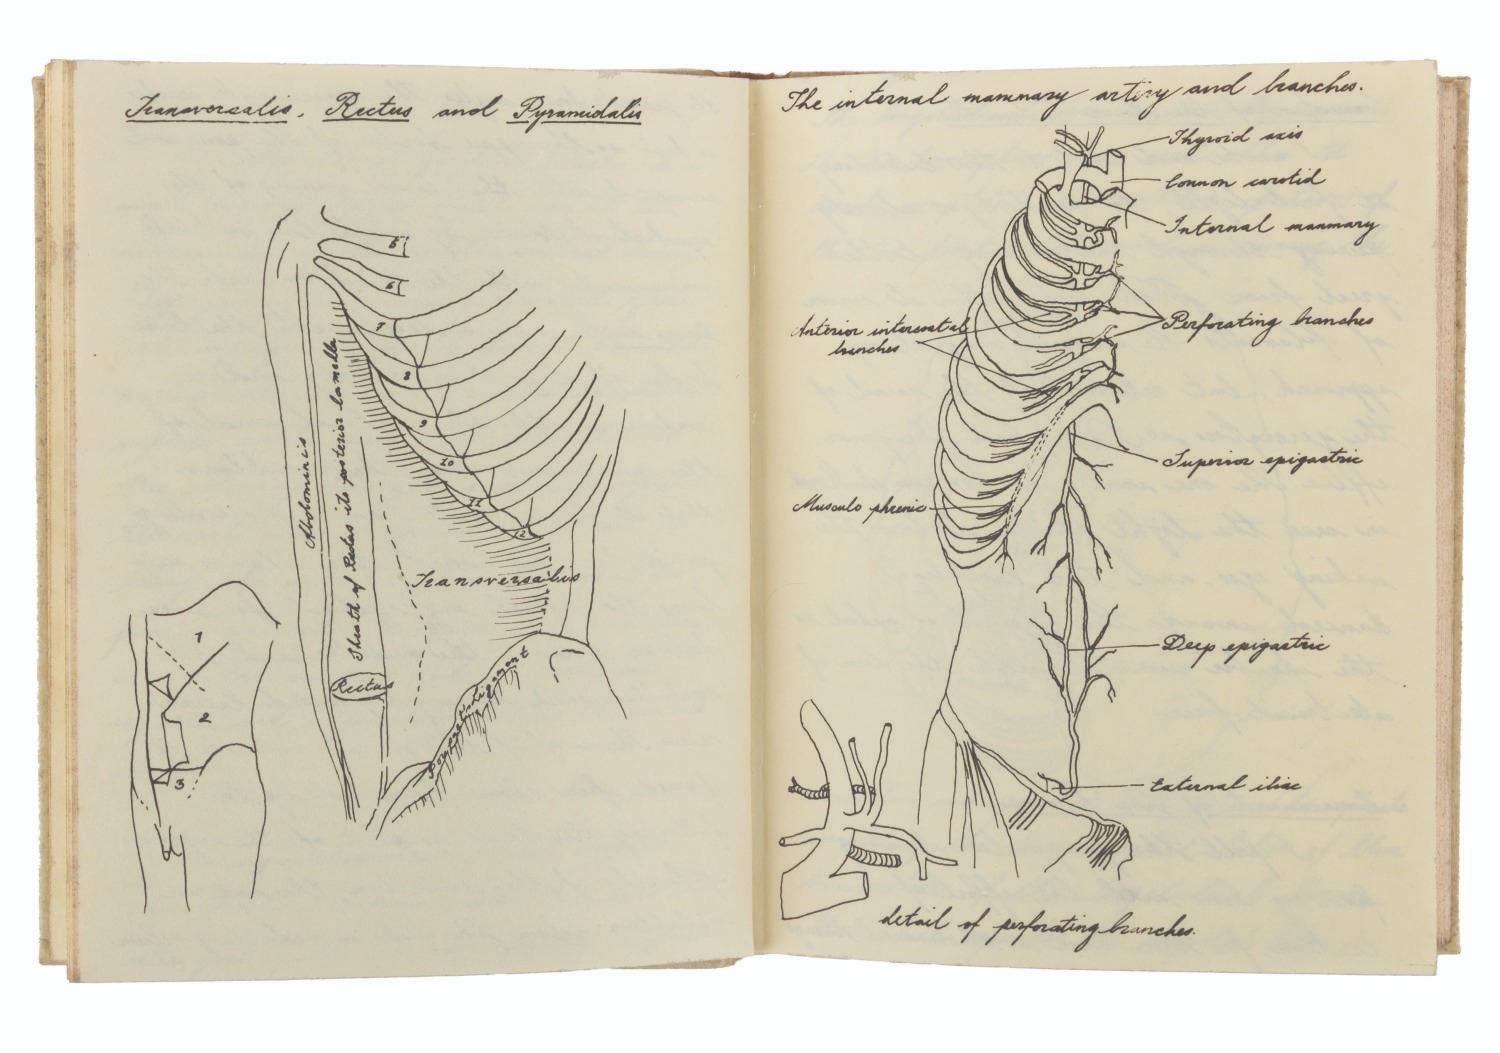 Transversalis, Rectus and Pyramidalis
5
6
7
8
9
10
11
12
Abdominis
Sheath of Rectus its posterior lamella
Transversalis
Rectus
Poupart's ligament
1
2
3
The internal mammary artery and branches.
Thyroid axis
Common carotid
Internal mammary
Anterior intercostal
branches
Perforating branches
Superior epigastric
Musculo phrenic
Deep epigastric
External iliac
detail of perforating branches.